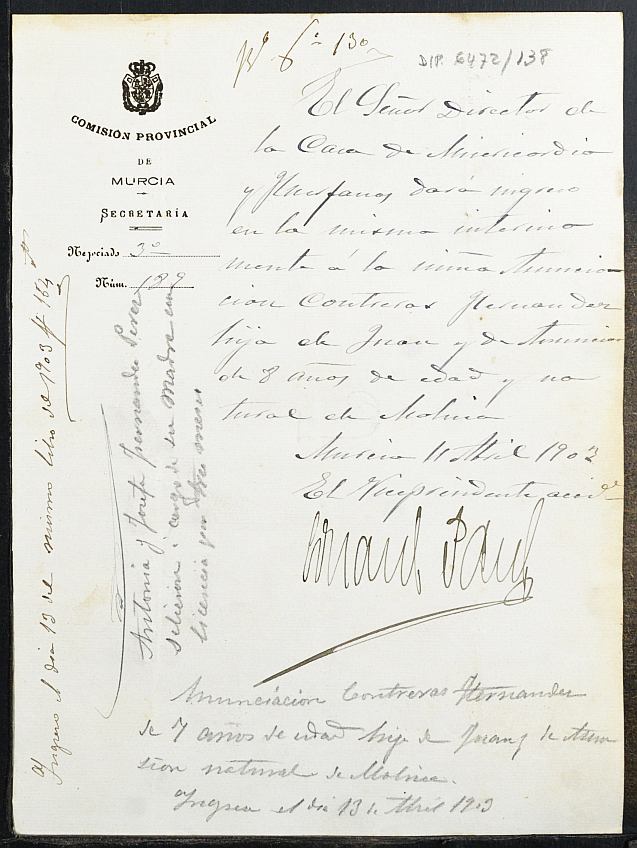 fº 6º 130
DIP. 6472/138
COMISIÓN PROVINCIAL
DE
MURCIA
SECRETARÍA
Negociado 3º
Núm. 189
El Señor Director de
la Casa de Misericordia
y Huerfanos dará ingreso
en la misma interina
mente á la niña Anuncia
cion Contreras Hernandez
hija de Juan y de Anuncia
de 8 años de edad y na
tural de Molina
Murcia 11 Abril 1903
El Vicepresidente accid
Antonia y Josefa Hernandez Perez
salieron á cargo de su Madre con
licencia por tres meses
Ingreso el dia 13 del mismo libro de 1903 fº 164
Anunciación Contreras Hernandez
de 7 años de edad hija de Juan y de Asun
sion natural de Molina.
Ingresa el dia 13 de Abril 1903